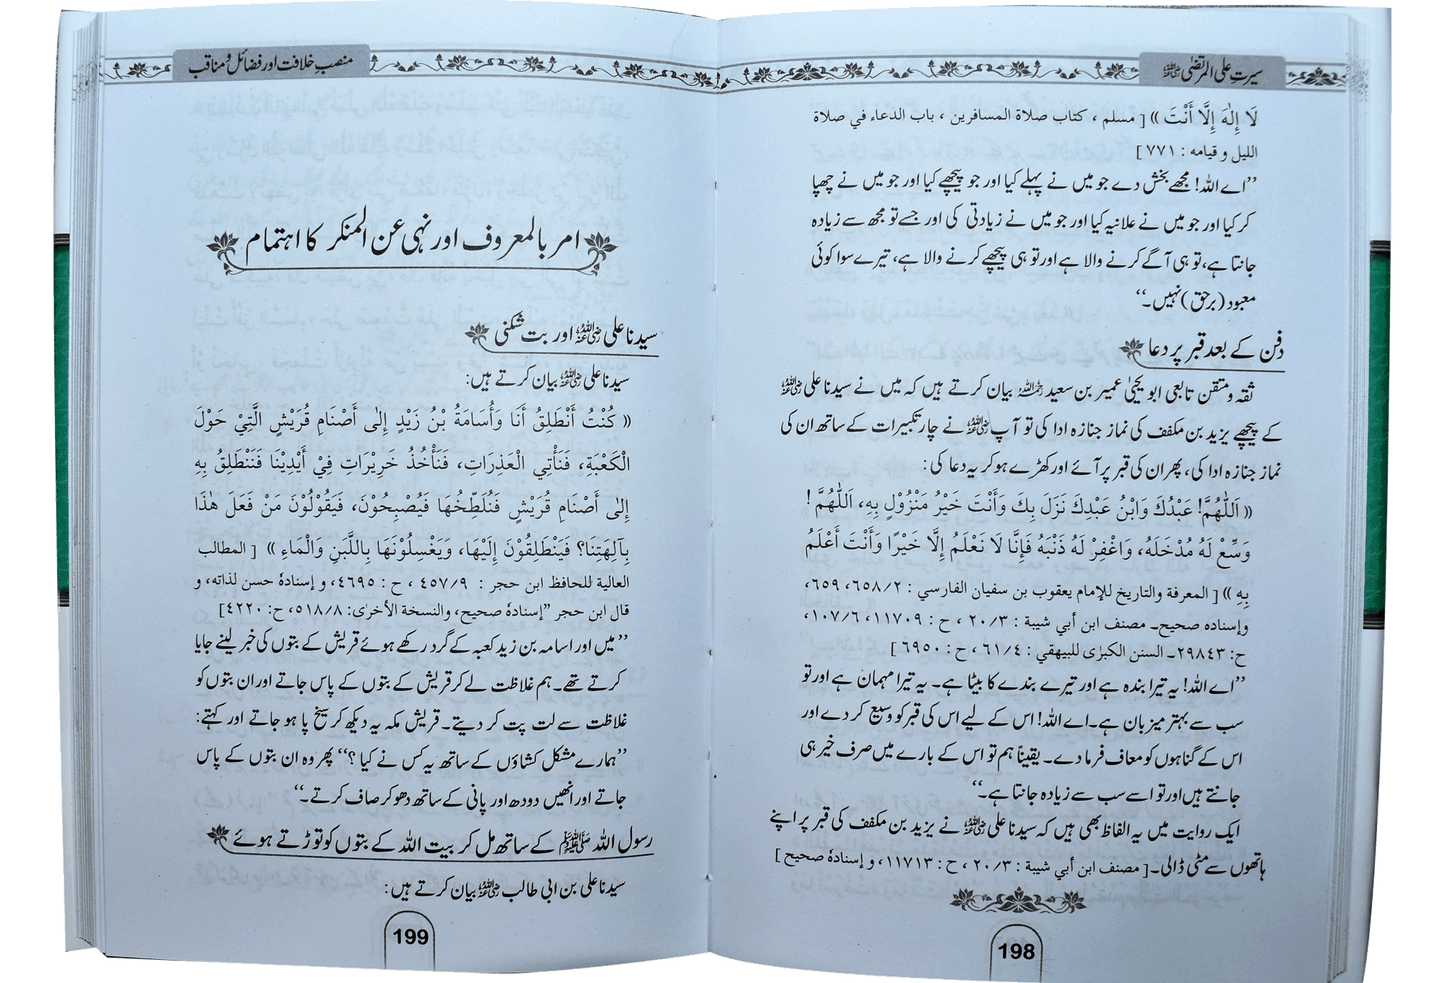 سیرتِ علی المرتضیٰ رضی اللہ عنہ
لَا إِلٰهَ إِلَّا أَنْتَ )) [ مسلم ، كتاب صلاة المسافرين ، باب الدعاء في صلاة
الليل و قيامه : ٧٧١ ]
’’اے اللہ! مجھے بخش دے جو میں نے پہلے کیا اور جو پیچھے کیا اور جو میں نے چھپا
کر کیا اور جو میں نے علانیہ کیا اور جو میں نے زیادتی کی اور جسے تو مجھ سے زیادہ
جانتا ہے، تو ہی آگے کرنے والا ہے اور تو ہی پیچھے کرنے والا ہے، تیرے سوا کوئی
معبود (برحق) نہیں۔‘‘
دفن کے بعد قبر پر دعا
ثقہ و متقن تابعی ابو یحییٰ عمیر بن سعید رحمہ اللہ بیان کرتے ہیں کہ میں نے سیدنا علی رضی اللہ عنہ
کے پیچھے یزید بن مکفف کی نماز جنازہ ادا کی تو آپ رضی اللہ عنہ نے چار تکبیرات کے ساتھ ان کی
نماز جنازہ ادا کی، پھر ان کی قبر پر آئے اور کھڑے ہو کر یہ دعا کی:
(( اَللّٰهُمَّ! عَبْدُكَ وَابْنُ عَبْدِكَ نَزَلَ بِكَ وَأَنْتَ خَيْرُ مَنْزُوْلٍ بِهِ، اَللّٰهُمَّ !
وَسِّعْ لَهُ مُدْخَلَهُ، وَاغْفِرْ لَهُ ذَنْبَهُ فَإِنَّا لَا نَعْلَمُ إِلَّا خَيْرًا وَأَنْتَ أَعْلَمُ
بِهِ )) [ المعرفة والتاريخ للإمام يعقوب بن سفيان الفارسي : ٢/ ٦٥٨، ٦٥٩،
وإسناده صحيح۔ مصنف ابن أبي شيبة : ٣/ ٢٠ ، ح : ١١٧٠٩، ٦/ ١٠٧،
ح: ٢٩٨٤٣۔ السنن الكبرٰى للبيهقي : ٤/ ٦١ ، ح : ٦٩٥٠ ]
’’اے اللہ! یہ تیرا بندہ ہے اور تیرے بندے کا بیٹا ہے۔ یہ تیرا مہمان ہے اور تو
سب سے بہتر میزبان ہے۔ اے اللہ! اس کے لیے اس کی قبر کو وسیع کر دے اور
اس کے گناہوں کو معاف فرما دے۔ یقیناً ہم تو اس کے بارے میں صرف خیر ہی
جانتے ہیں اور تو اسے سب سے زیادہ جانتا ہے۔‘‘
ایک روایت میں یہ الفاظ بھی ہیں کہ سیدنا علی رضی اللہ عنہ نے یزید بن مکفف کی قبر پر اپنے
ہاتھوں سے مٹی ڈالی۔ [ مصنف ابن أبي شيبة : ٣/ ٢٠ ، ح : ١١٧١٣، و إسنادهٗ صحيح ]
198
منصبِ خلافت اور فضائل و مناقب
امر بالمعروف اور نہی عن المنکر کا اہتمام
سیدنا علی رضی اللہ عنہ اور بت شکنی
سیدنا علی رضی اللہ عنہ بیان کرتے ہیں:
(( كُنْتُ أَنْطَلِقُ أَنَا وَأُسَامَةُ بْنُ زَيْدٍ إِلٰى أَصْنَامِ قُرَيْشٍ الَّتِيْ حَوْلَ
الْكَعْبَةِ، فَنَأْتِي الْعَذِرَاتِ، فَنَأْخُذُ خَرِيْرَاتٍ فِيْ أَيْدِيْنَا فَنَنْطَلِقُ بِهِ
إِلٰى أَصْنَامِ قُرَيْشٍ فَنُلَطِّخُهَا فَيُصْبِحُوْنَ، فَيَقُوْلُوْنَ مَنْ فَعَلَ هٰذَا
بِآلِهَتِنَا؟ فَيَنْطَلِقُوْنَ إِلَيْهَا، وَيَغْسِلُوْنَهَا بِاللَّبَنِ وَالْمَاءِ )) [ المطالب
العالية للحافظ ابن حجر : ٩/ ٤٥٧ ، ح : ٤٦٩٥، و إسنادهٗ حسن لذاته، و
قال ابن حجر ”إسنادهٗ صحيح، والنسخة الأخرى: ٨/ ٥١٨، ح: ٤٢٢٠]
’’میں اور اسامہ بن زید کعبہ کے گرد رکھے ہوئے قریش کے بتوں کی خبر لینے جایا
کرتے تھے۔ ہم غلاظت لے کر قریش کے بتوں کے پاس جاتے اور ان بتوں کو
غلاظت سے لت پت کر دیتے۔ قریش مکہ یہ دیکھ کر سیخ پا ہو جاتے اور کہتے:
’’ہمارے مشکل کشاؤں کے ساتھ یہ کس نے کیا ؟‘‘ پھر وہ ان بتوں کے پاس
جاتے اور انھیں دودھ اور پانی کے ساتھ دھو کر صاف کرتے۔‘‘
رسول اللہ ﷺ کے ساتھ مل کر بیت اللہ کے بتوں کو توڑتے ہوئے
سیدنا علی بن ابی طالب رضی اللہ عنہ بیان کرتے ہیں:
199